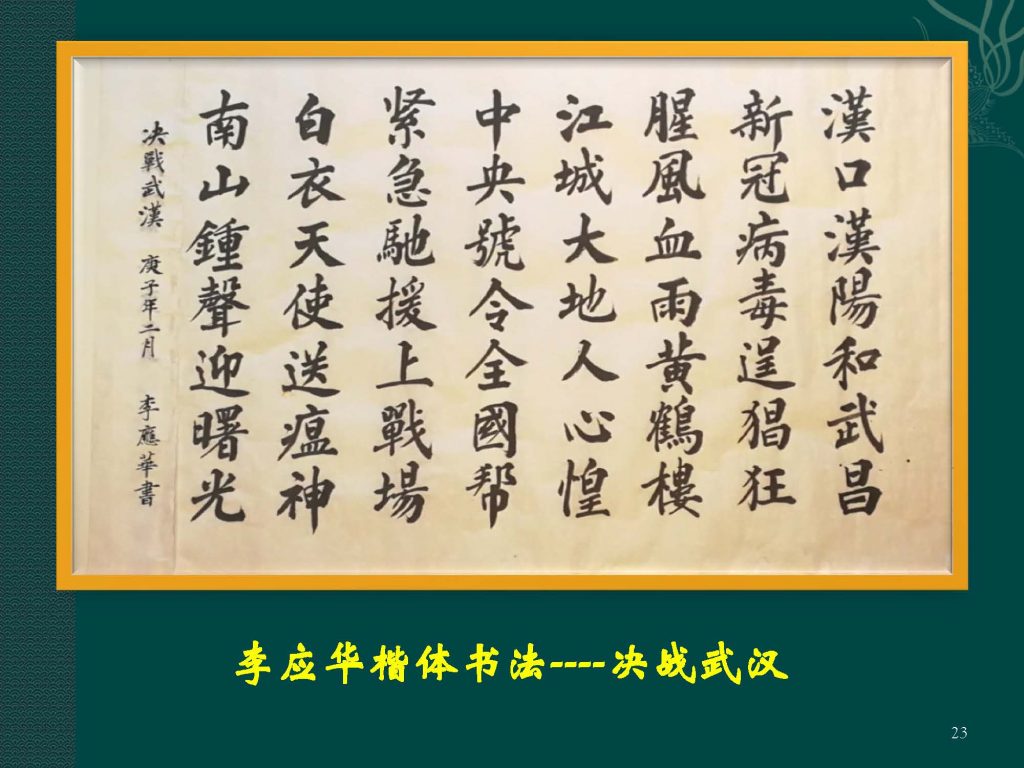 漢口漢陽和武昌
新冠病毒逞猖狂
腥風血雨黄鶴樓
江城大地人心惶
中央號令全國帮
紧急馳援上戰場
白衣天使送瘟神
南山鍾聲迎曙光
决戰武漢 庚子年二月 李應華書
李应华楷体书法----决战武汉
23